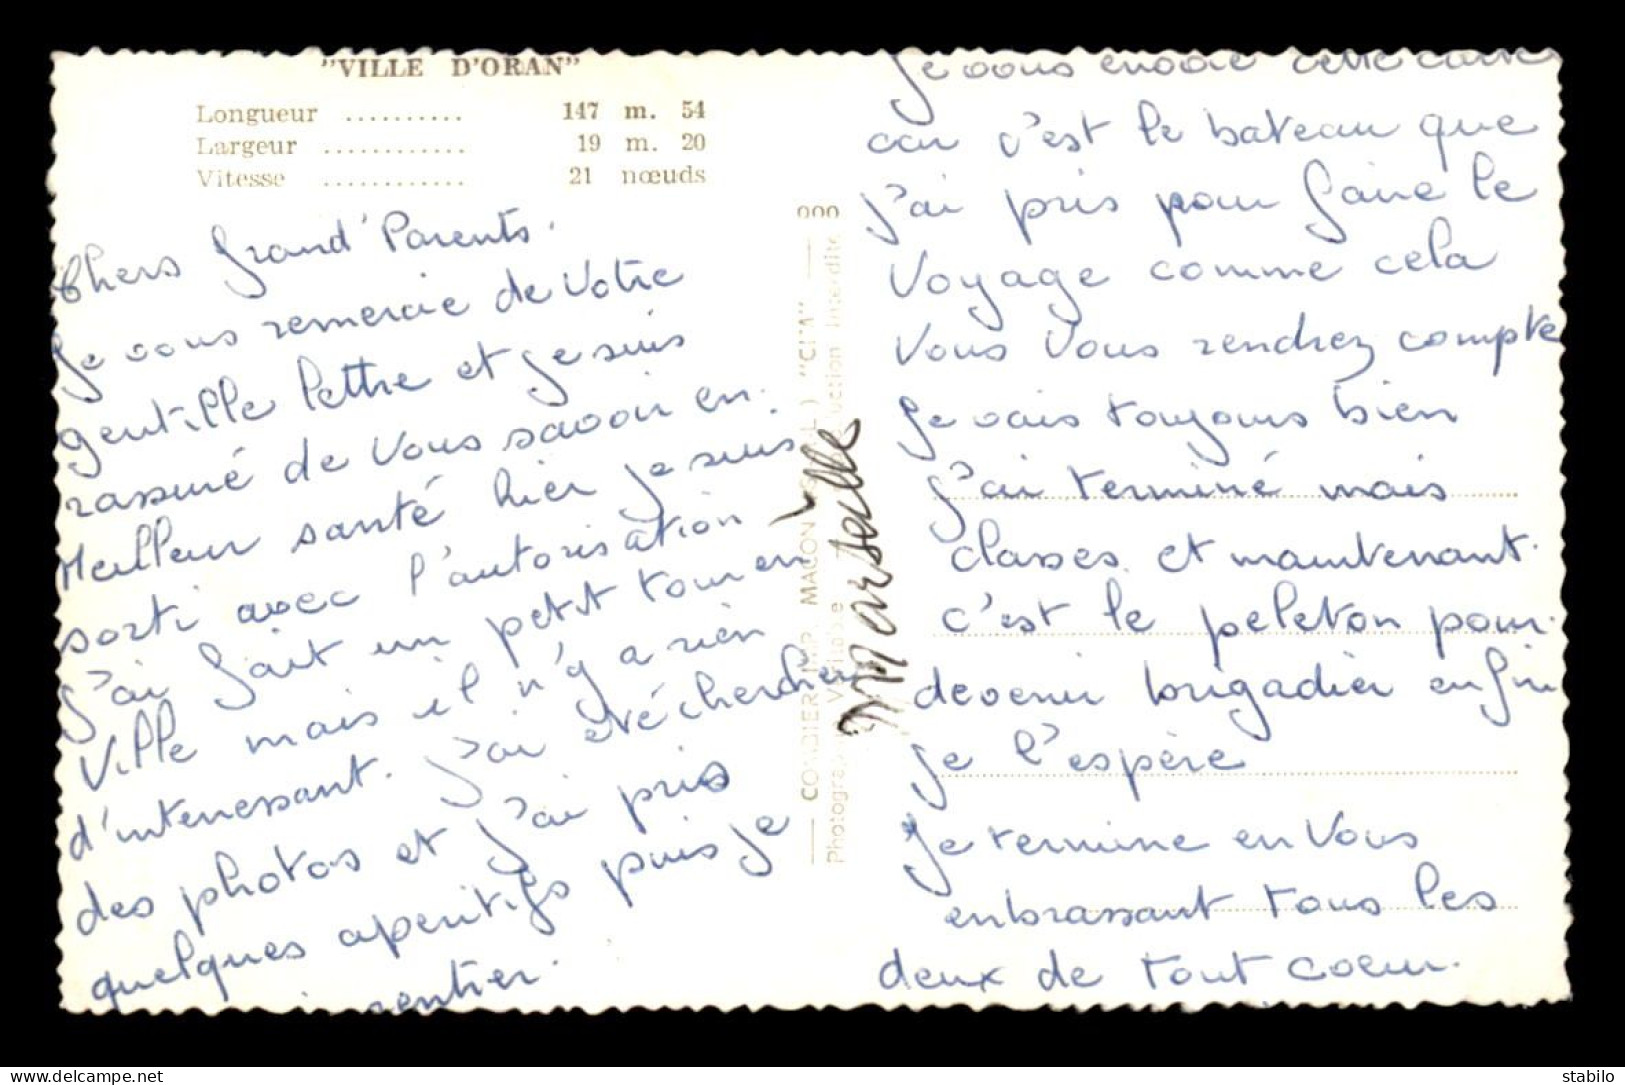 "VILLE D'ORAN"
Longueur .......... 147 m. 54
Largeur ............ 19 m. 20
Vitesse ............ 21 nœuds
Chers Grand'Parents.
Je vous remercie de Votre
gentille lettre et je suis
rassuré de Vous savoir en
Meilleur santé hier je suis
sorti avec l'autorisation
j'ai fait un petit tour en
Ville mais il n'y a rien
d'interessant. j'ai été chercher
des photos et j'ai pris
quelques aperitifs puis je
rentrer.
000
COMBIER IMP. MACON "CIM"
Marseille
Je vous envoie cette carte
car c'est le bateau que
j'ai pris pour faire le
Voyage comme cela
Vous Vous rendrez compte
Je vais toujours bien
j'ai terminé mais
classes et maintenant.
c'est le peleton pour
devenir brigadier enfin
je l'espère
Je termine en Vous
enbrassant tous les
deux de tout coeur.
delcampe.net
stabilo